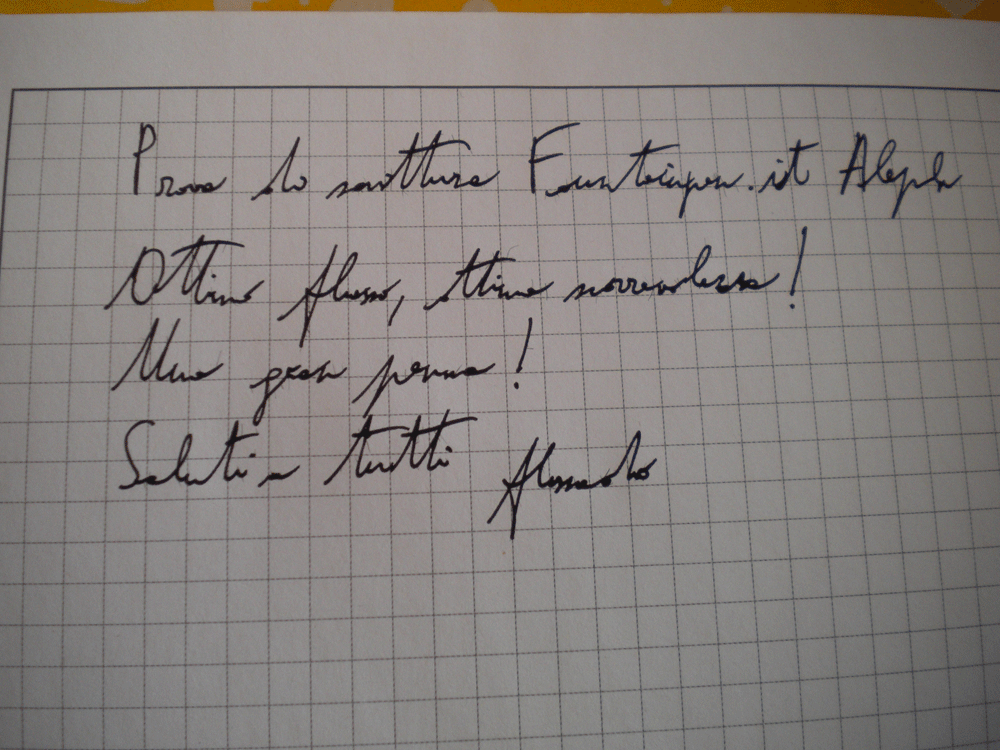 Prova di scrittura Fountainpen.it Aleph
Ottimo flusso, ottima scorrevolezza!
Una gran penna!
Saluti a tutti Alessandro